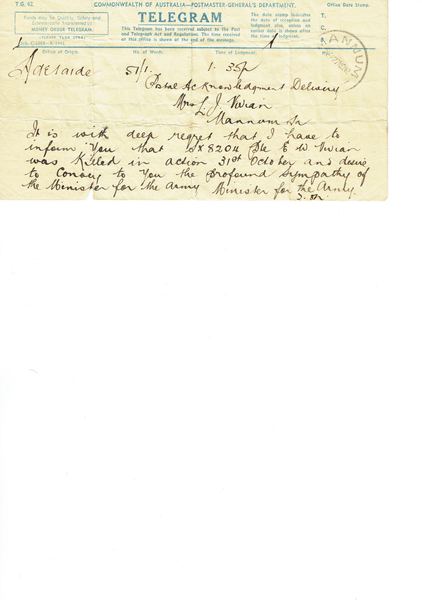 T.G. 42. COMMONWEALTH OF AUSTRALIA—POSTMASTER-GENERAL'S DEPARTMENT. Office Date Stamp.
TELEGRAM
Funds may be Quickly, Safely and
Economically Transferred by
MONEY ORDER TELEGRAM.
(PLEASE TURN OVER)
This Telegram has been received subject to the Post
and Telegraph Act and Regulations. The time received
at this office is shown at the end of the message.
The date stamp indicates
the date of reception and
lodgment also, unless an
earlier date is shown after
the time of lodgment.
MANNUM
Office of Origin. No. of Words. Time of Lodgment.
Adelaide 51/1. 1. 35p
Postal Acknowledgment Delivery
Mrs L. J. Vivian
Mannum SA
It is with deep regret that I have to
inform You that SX8204 Pte E W Vivian
was Killed in action 31st October and desire
to Convey to You the profound Sympathy of
the Minister for the Army Minister for the Army